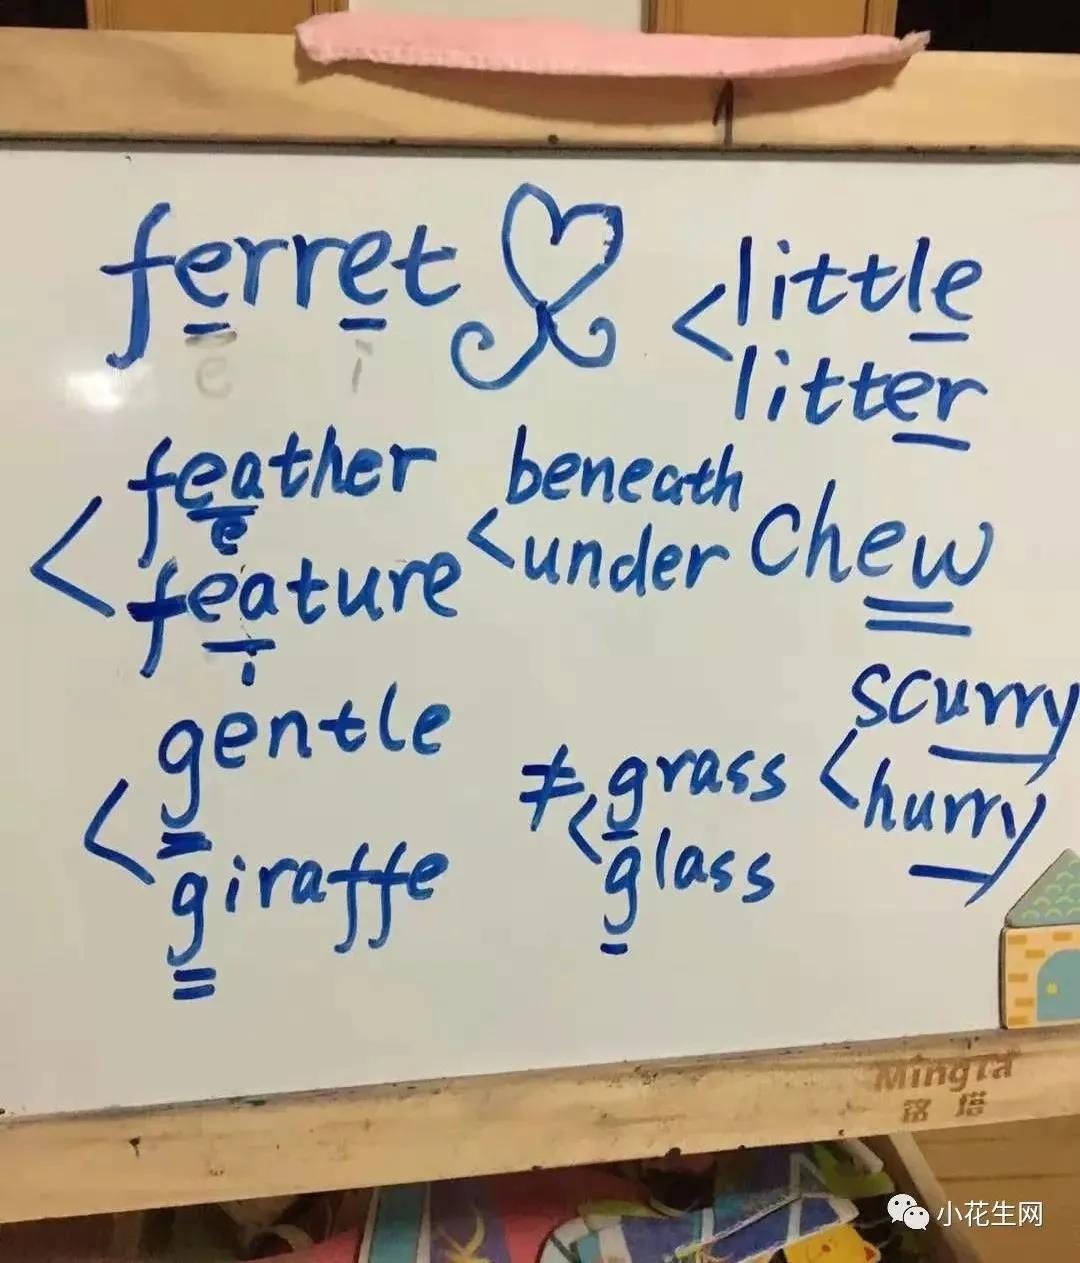 ferret
e i
little
litter
feather
e
feature
i
beneath
under
chew
gentle
giraffe
≠
grass
glass
scurry
hurry
MingTa
铭塔
小花生网